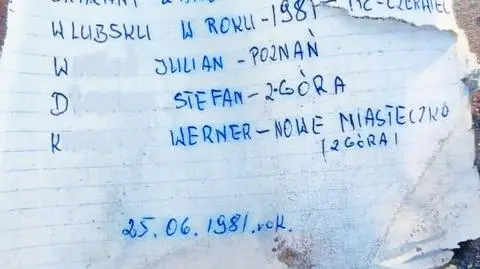 W LUBSKU W ROKU - 1981 -
W JULIAN - POZNAŃ
D STEFAN - Z-GÓRA
K WERNER - NOWE MIASTECZKO
/ZGÓRA/
25.06.1981.rok.